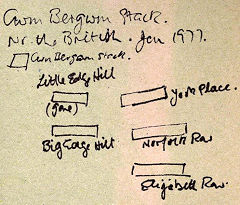 Cwm Bergwm Stack.
Nr. the British. Jan 1977.
Cwm Bergwm Stack.
Little Edge Hill
(gone)
York Place.
Big Edge Hill
Norfolk Row
Elizabeth Row